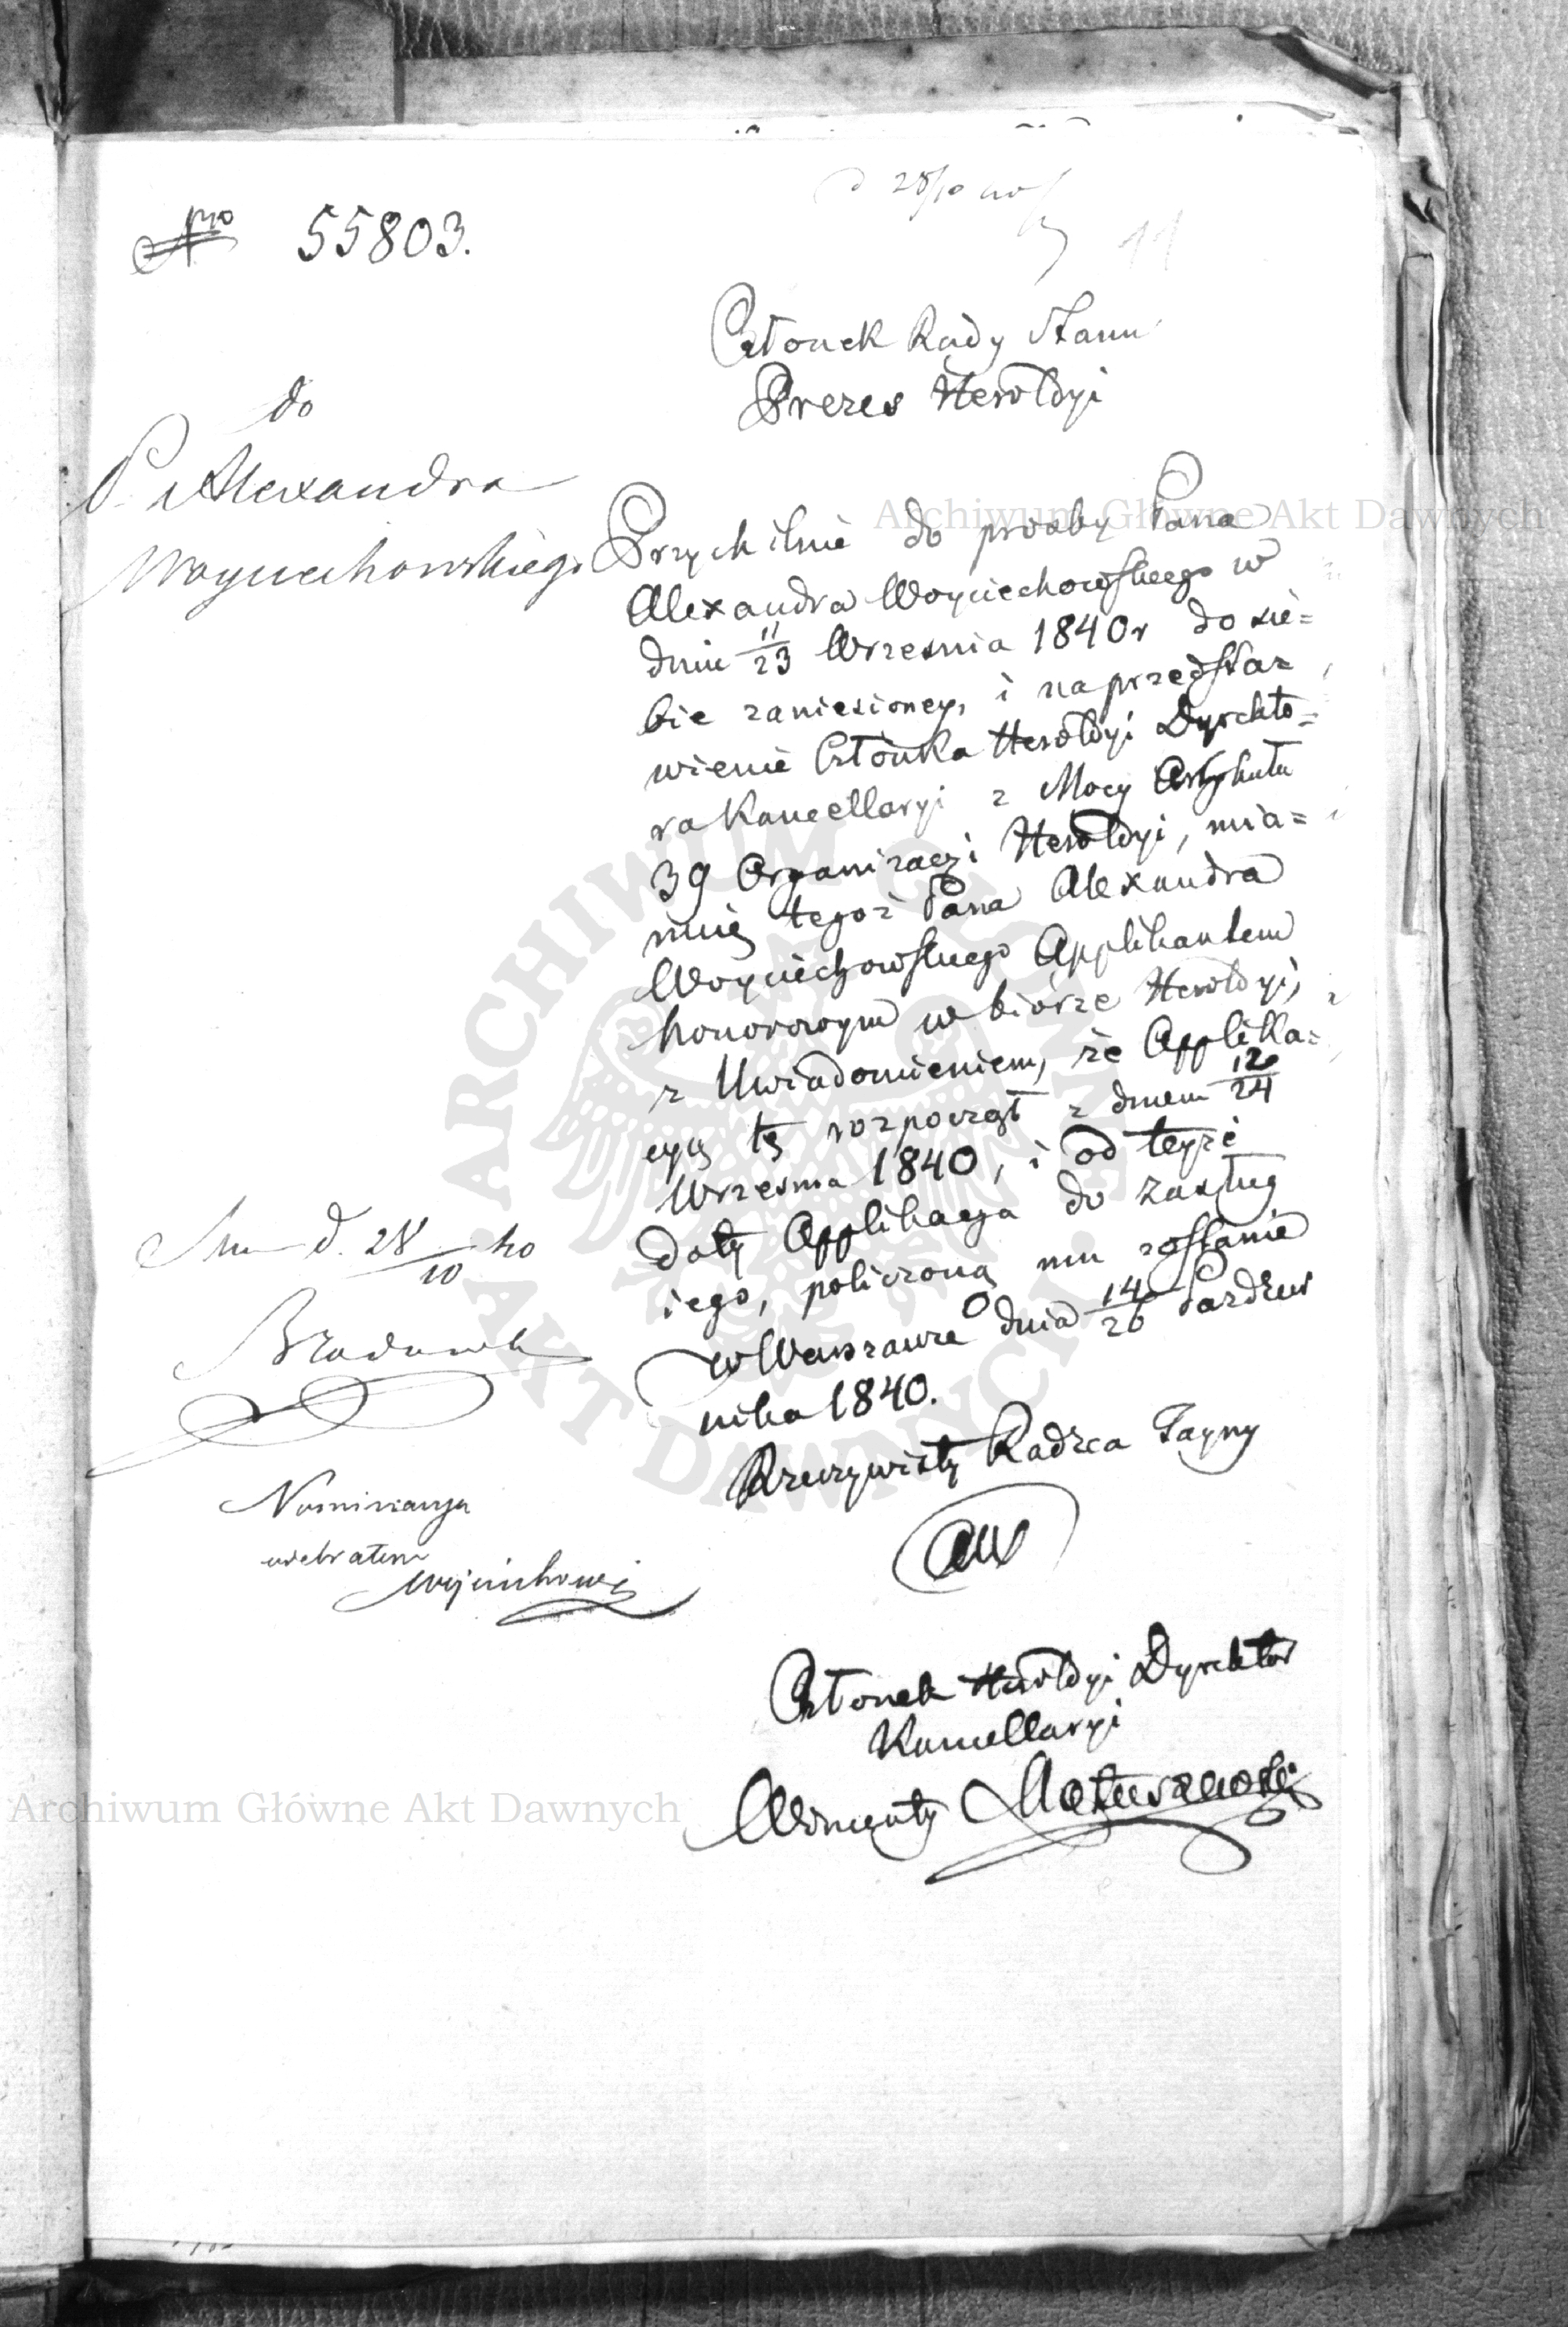 Nro 55803.
11
Członek Rady Stanu
Prezes Heroldyi
do
P. Alexandra
Woyciechowskiego
Przychilnie do prozby Pana
Alexandra Woyciechowskiego w
dniu 11/23 Wrzesnia 1840 r do sie=
bie zaniesioney, i na przedsta=
wienie Członka Heroldyi Dyrekto=
ra Kancellaryi z Mocy Artykułu
39 Organizacyi Heroldyi, mia=
nuię tegoż Pana Alexandra
Woyciechowskiego Applikantem
honorowym w biórze Heroldyi,
z Uwiadomieniem, że Applika=
cyą tę rozpoczął z dniem 12/24
Wrzesnia 1840, i od teyże
daty Applikacya do zasług
iego, policzoną mu zostanie
w Warszawie dnia 14/26 Pazdzier
nika 1840.
Rzeczywisty Radzca Tayny
d. 28/10 40
Nominacyą
odebrałem
Wojciechowski
Członek Heroldyi Dyrektor
Kancellaryi
Wincenty Matuszewski
Archiwum Główne Akt Dawnych
Archiwum Główne Akt Dawnych
ARCHIWUM GŁÓWNE AKT DAWNYCH